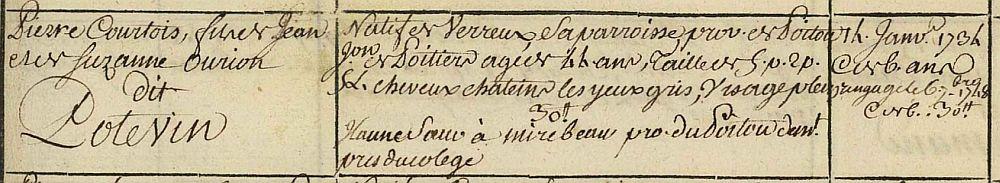 Pierre Courtois, fils de Jean
et de Suzanne Ourion
dit
Potevin
Natif de Verreux sa parroisse prov. de Poitou
Jon de Poitiers agé de 44 ans, Taille de 5. p. 2 p.
cheveux chateins les yeux gris, Visage plein
30tt
Jeanne Sauv à mirebeau pro. du Poitou dem.t
pres du colege
14. Janv.r 1734
6 ans
rengagé le 6. 7bre 1748
30tt